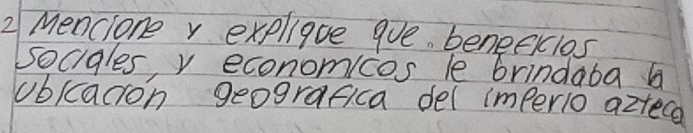 2 Mencione y explique que. beneficios
sociales, y economicos le brindaba la
ubicación geografica del imperio azteca